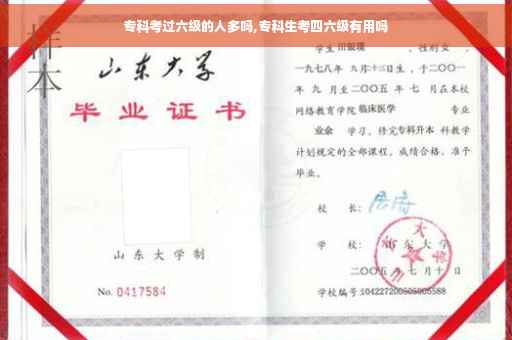 专科考过六级的人多吗,专科生考四六级有用吗
样本
山东大学
毕业证书
山东大学制
No. 0417584
学生田银瑛 ，性别女，
一九七八年 九月十三日生，于二〇〇一
年 九 月至二〇〇五 年 七 月在本校
网络教育学院临床医学 专业
业余 学习，修完专科升本 科教学
计划规定的全部课程，成绩合格，准予
毕业。
校 长：
学 校：山东大学
二〇〇五年七月十日
学校编号:104227200505005588